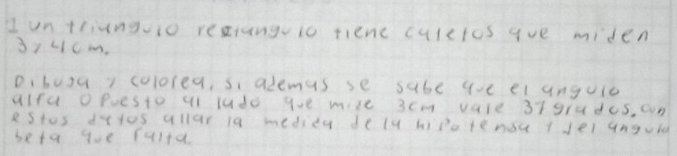 1 un triangulo rectangulo tiene catetos que miden
3 y 4 cm.
Dibuja y colorea, si ademas se sabe que el angulo
alfa opuesto al lado que mide 3cm vale 37 grados. con
estos datos allar la medida de la hipotensa y del angulo
beta que falta.